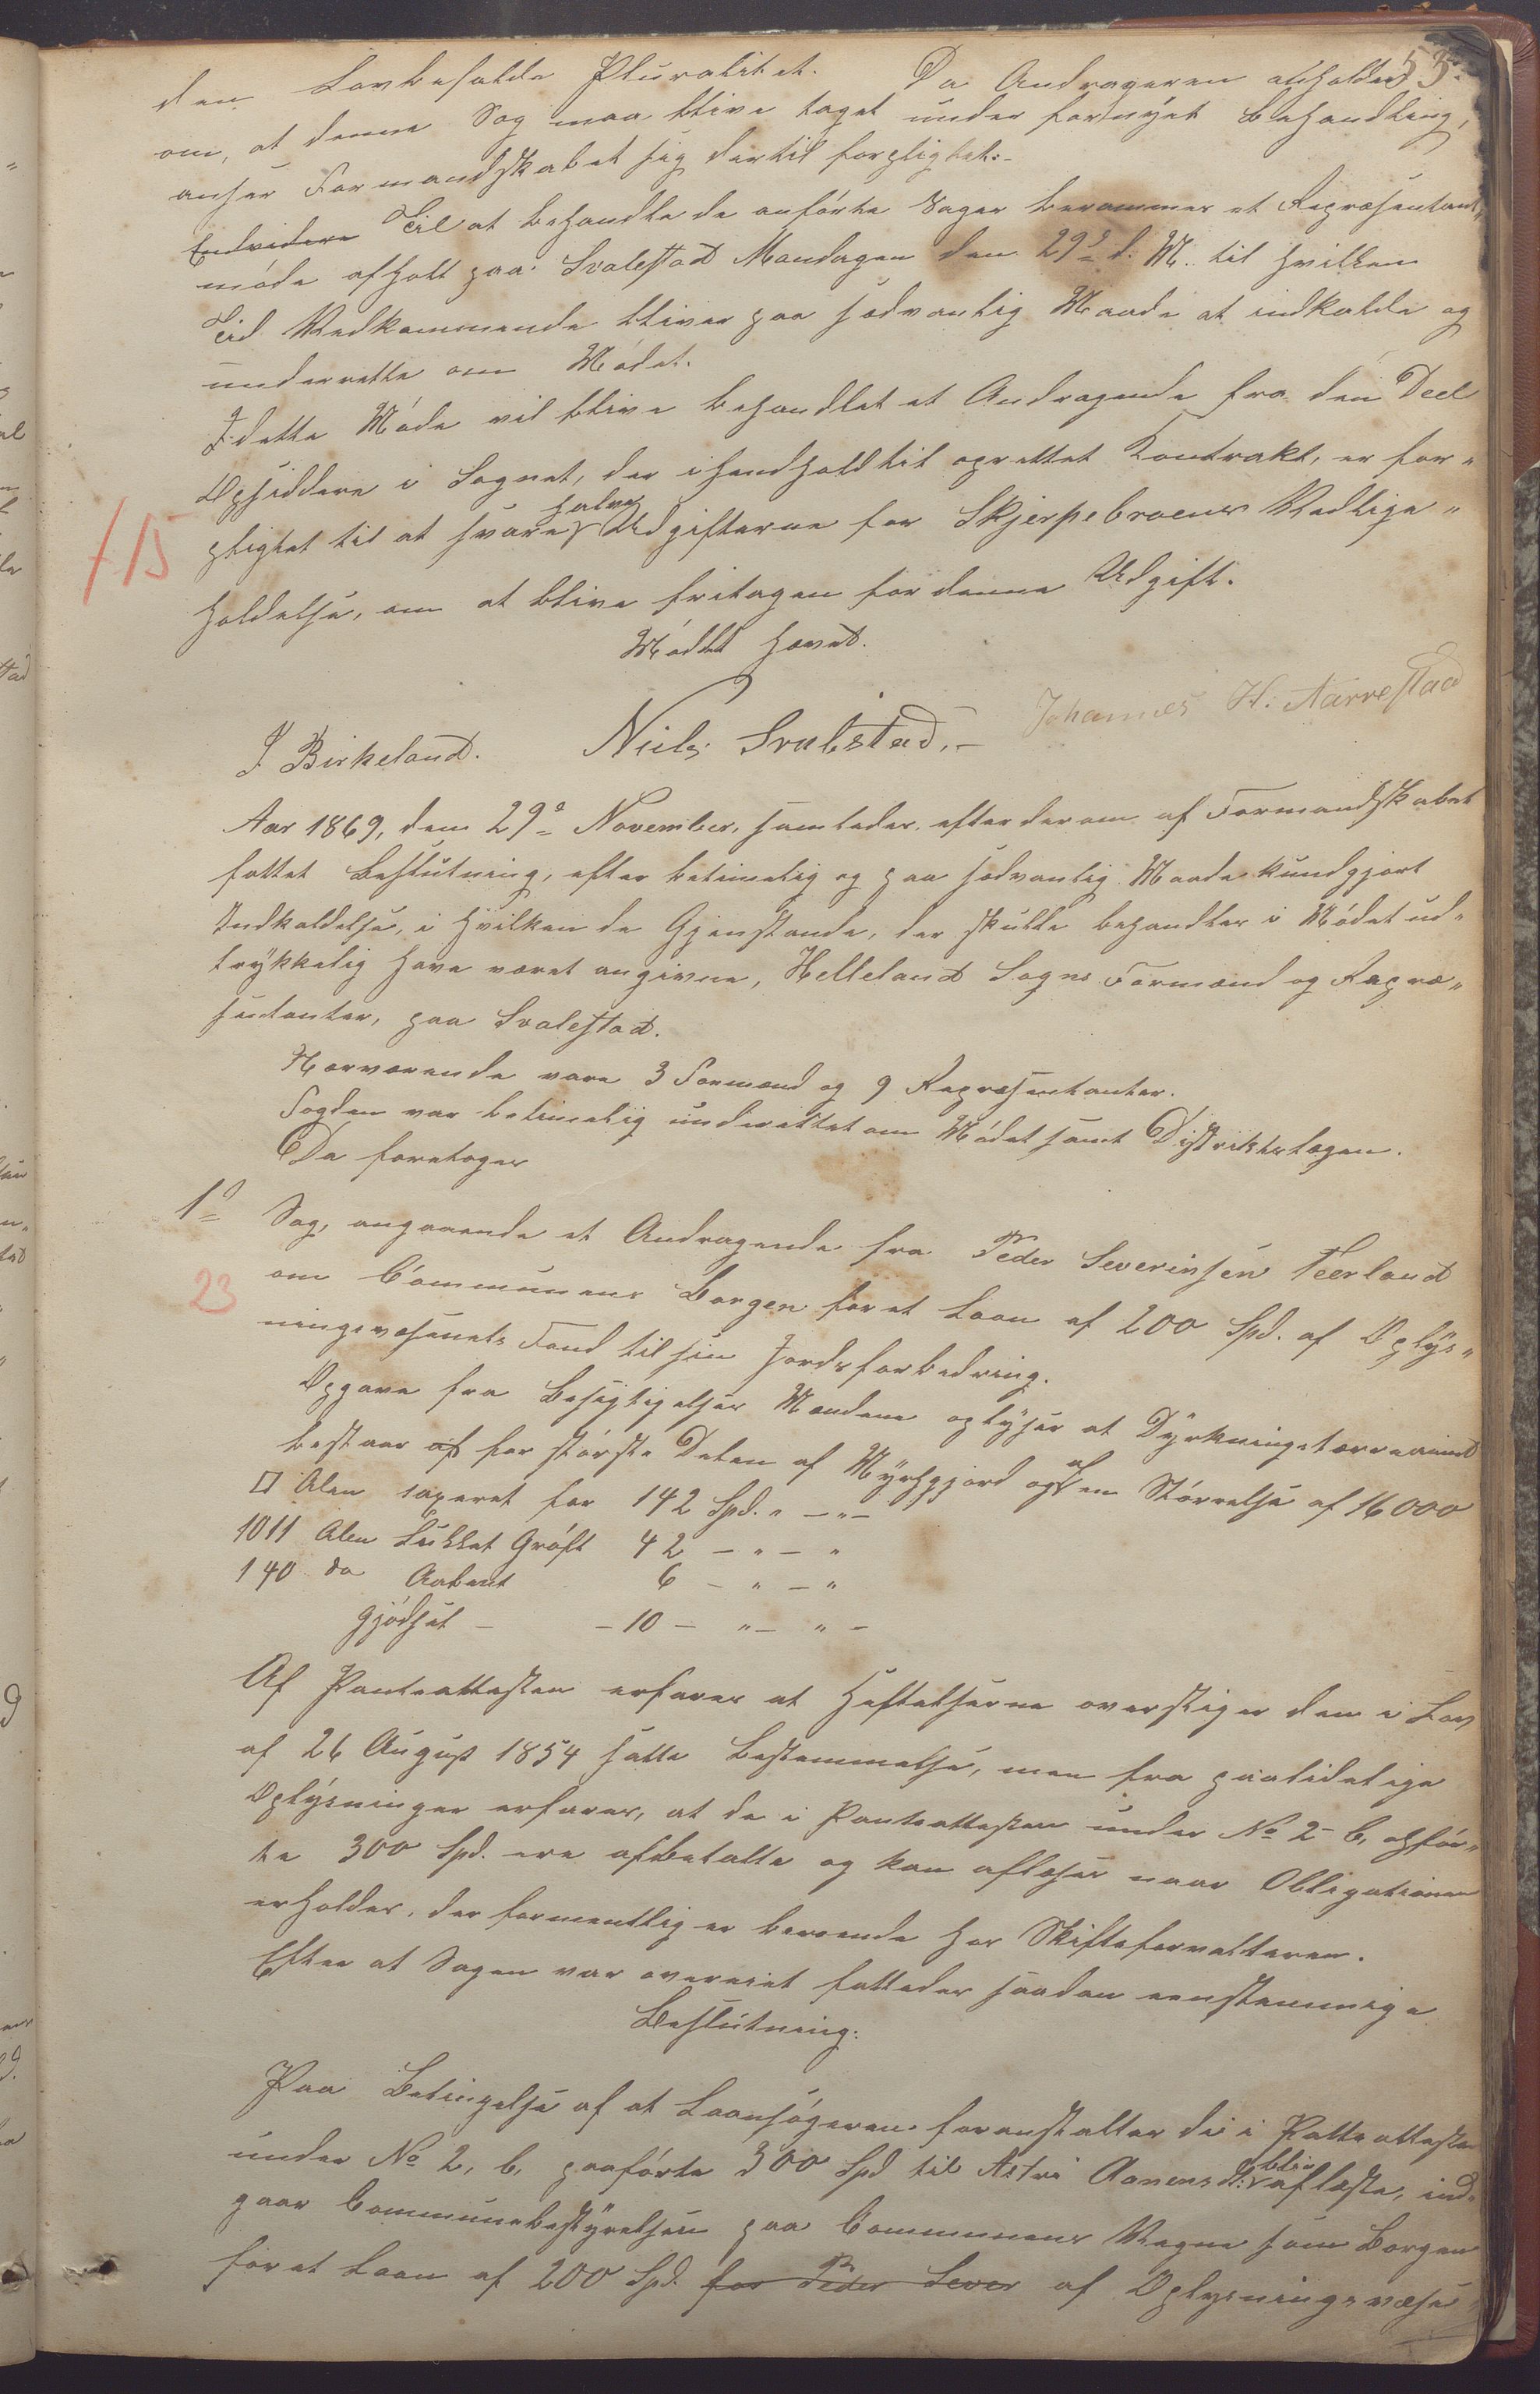 53.
den Lovbefalde Pluralitet. Da Andrageren anholder
om, at denne Sag maa blive taget under fornÿet Behandling,
anser Formandskabet sig dertil forpligtet.-
Endvidere Til at behandle de anførte Sager berammes et Repræsentant-
møde afholt paa Svalestad Mandagen den 29de d. M. til hvilken
Tid Vedkommende bliver paa sædvanlig Maade at indkalde og
underrette om Mødet.
I dette Møde vil blive behandlet et Andragende fra den Deel
Opsiddere i Sognet, der i Henhold til oprettet Kontrakt, er for-
pligtet til at svare halve Udgifterne for Skjerpebroens Vedlige-
115
holdelse, om at blive fritagen for denne Udgift.
Mødet hævet.
J Birkeland. Niels Svalestad.- Johannes H: Aarrestad
Aar 1869, den 29de November, samledes efter derom af Formandskabet
fattet Beslutning, efter betimelig og paa sædvanlig Maade kundgjort
Indkaldelse, i hvilken de Gjenstande, der skulle behandles i Mødet ud-
trÿkkelig have været angivne, Helleland Sogns Formænd og Repræ-
sentanter, paa Svalestad.
Nærværende vare 3 Formænd og 9 Repræsentanter.
Fogden var betimelig underettet om Mødet samt Distriktslægen.
Da foretoges
1o Sag, angaaende et Andragende fra Peder Severinsen Teerland
23
om Communens Borgen for et Laan af 200 Spd. af Oplÿs-
ningsvæsenets Fond til sin Jordsforbedring.
Opgave fra Besigtigelses Mændene oplÿser at Dÿrkningsterrainet
bestaar af for største Delen af Mÿrhgjord og af en Størrelse af 16000
□ Alen taxeret for 142 Spd. " — " —
1011 Alen Lukket Grøft 42 — " — "
140 do Aabent 6 — " — "
Gjødsel — — 10 — " — " —
Af Panteattesten erfares at Heftelserne overstiger den i Lov
af 26 August 1854 satte Bestemmelse, men fra paalidelige
Oplÿsninger erfares, at de i Panteattesten under No 2 b, opfør-
te 300 Spd. ere afbetalte og kan aflæses naar Obligationen
erholdes, der formentlig er beroende hos Skifteforvalteren.
Efter at Sagen var overveiet fattedes saadan eenstemmige
Beslutning:
Paa Betingelse af at Laansøgeren foranstalter de i Patteattesten
under No 2, b, paaførte 300 Spd til Astri Aanensd: bliv aflæste, ind-
gaar Communebestÿrelsen paa Communens Vegne som Borgen
for et Laan af 200 Spd. for Peder Sever af Oplysningsvæse-